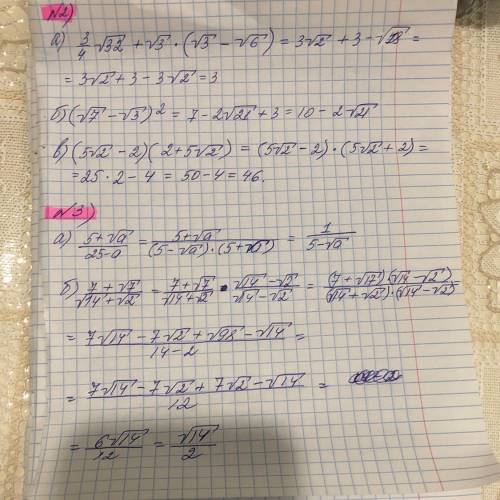 №2)
а) 3/4 √32 + √3 · (√3 − √6) = 3√2 + 3 − √18 =
= 3√2 + 3 − 3√2 = 3
б) (√7 − √3)² = 7 − 2√21 + 3 = 10 − 2√21
в) (5√2 − 2)(2 + 5√2) = (5√2 − 2) · (5√2 + 2) =
= 25 · 2 − 4 = 50 − 4 = 46.
№3)
а) (5+√a)/(25−a) = (5+√a)/((5−√a)·(5+√a)) = 1/(5−√a)
б) (7+√7)/(√14+√2) = (7+√7)/(√14+√2) · (√14−√2)/(√14−√2) = ((7+√17)(√14−√2))/((√14+√2)·(√14−√2)) =
= (7√14 − 7√2 + √98 − √14)/(14−2) =
= (7√14 − 7√2 + 7√2 − √14)/12 =
= 6√14/12 = √14/2